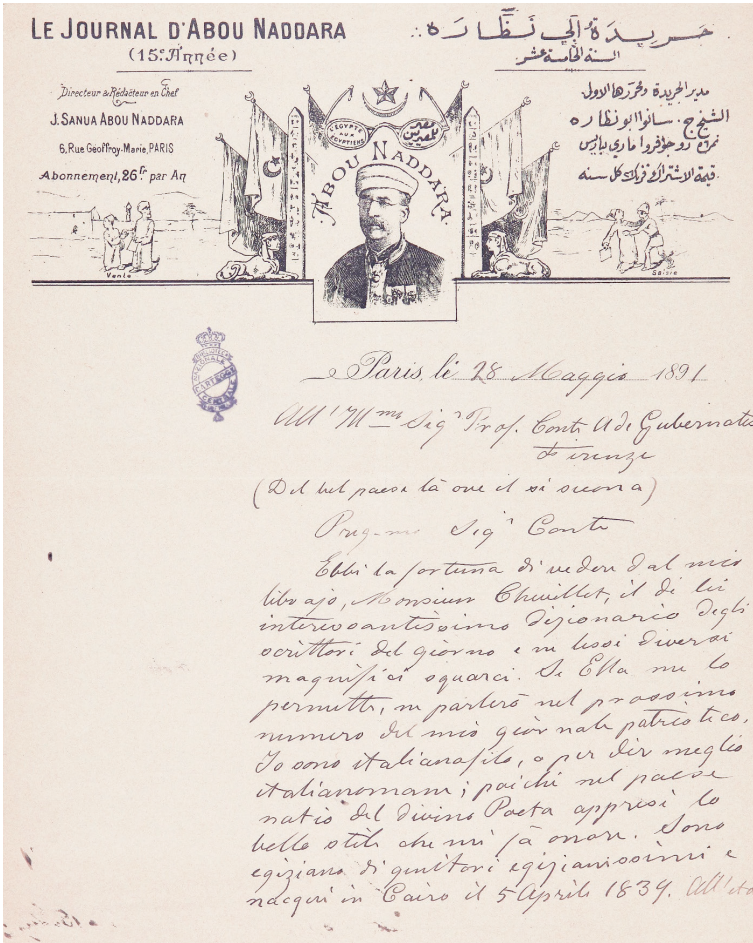 LE JOURNAL D'ABOU NADDARA
(15e Année)
Directeur & Rédacteur en Chef
J. SANUA ABOU NADDARA
6, Rue Geoffroy-Marie, PARIS
Abonnement, 26fr par An
Vente
جريدة أبي نظارة
السنة الخامسة عشر
مدير الجريدة ومحررها الاول
الشيخ ج. سانوا ابو نظاره
نمرة ٦ رو جوفروا ماري بباريس
قيمة الاشتراك فرنك كل سنه
Saisie
L'EGYPTE AUX EGYPTIENS
مصر للمصريين
ABOU NADDARA
Paris, le 28 Maggio 1891
All' Ill.mo Sigr Prof. Conte A de Gubernatis
Firenze
(Del bel paese là ove il sì suona)
Preg-mo Sigr Conte
Ebbi la fortuna di vedere dal mio
librajo, Monsieur Chevillet, il di lei
interessantissimo dizionario degli
scrittori del giorno e ne lessi diversi
magnifici squarci. Se Ella me lo
permette, ne parlerò nel prossimo
numero del mio giornale patriotico.
Io sono italianofilo, o per dir meglio
italianomane; poichè nel paese
natio del divino Poeta appresi lo
bello stile che mi fà onore. Sono
egiziano di genitori egizianissimi e
nacqui in Cairo il 5 Aprile 1839. All'età